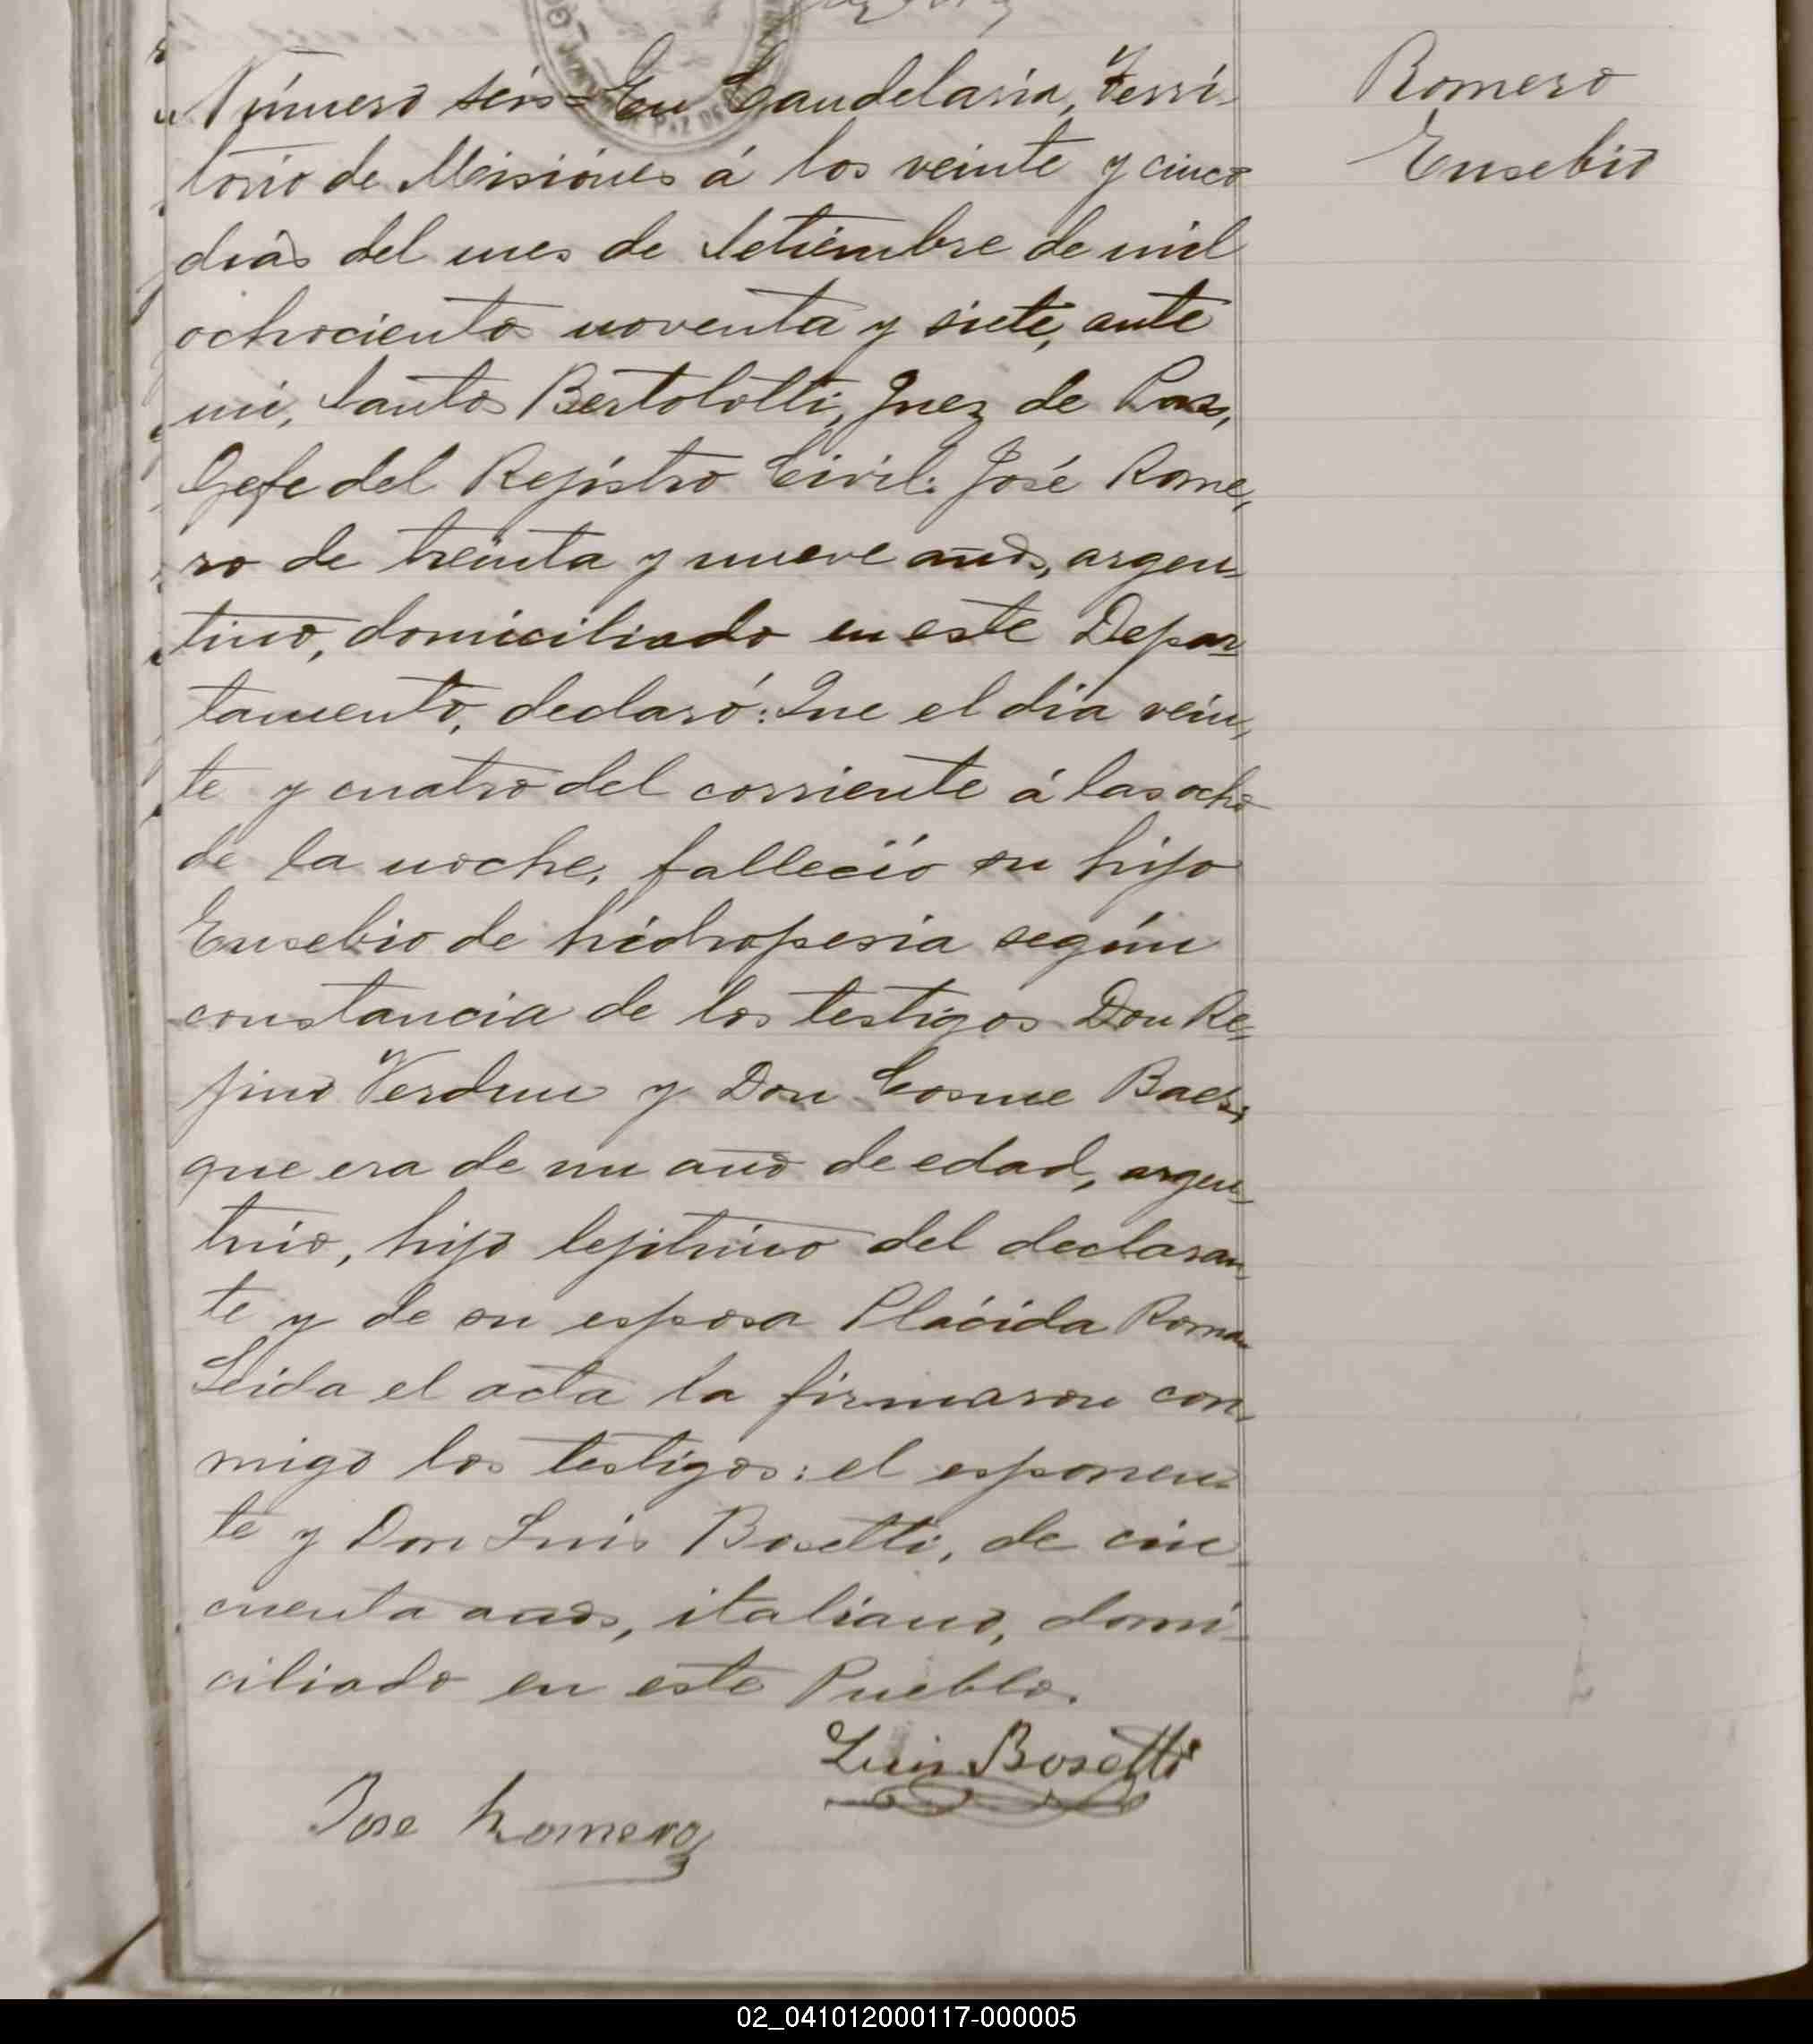 Número seis = En Candelaria, Terri-
torio de Misiones á los veinte y cinco
dias del mes de Setiembre de mil
ochociento noventa y siete, ante
mi, Santos Bertolotti, Juez de Paz,
Gefe del Rejistro Civil: José Rome-
ro de treinta y nueve años, argen-
tino, domiciliado en este Depar-
tamento, declaró: Que el dia vein-
te y cuatro del corriente á las ocho
de la noche, falleció su hijo
Eusebio de hidropesia según
constancia de los testigos Don Re-
jino Verdun y Don Cosme Baes,
que era de un año de edad, argen-
tino, hijo lejitimo del declaran-
te y de su esposa Plácida Roman
Leida el acta la firmaron con-
migo los testigos: el esponen-
te y Don Luis Bosetti, de cin-
cuenta años, italiano, domi-
ciliado en este Pueblo.
Luis Bosetti
Jose Romero
Romero
Eusebio
02_041012000117-000005